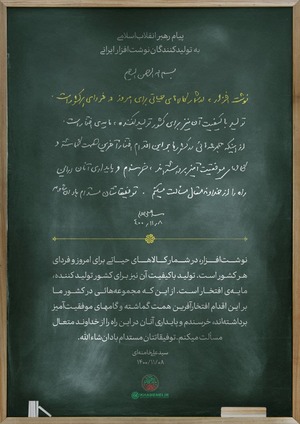 پیام رهبر انقلاب اسلامی
به تولیدکنندگان نوشت‌افزار ایرانی
بسم الله الرحمن الرحیم
نوشت افزار، در شمار کالاهای حیاتی برای امروز و فردای هر کشور است.
تولید با کیفیت آن نیز برای کشور تولیدکننده، مایه‌ی افتخار است.
از اینکه مجموعه‌هائی در کشور ما بر این اقدام افتخارآفرین همت گماشته و
گام‌های موفقیت‌آمیز برداشته‌اند، خرسندم و پایداری آنان در این
راه را از خداوند متعال مسألت میکنم. توفیقاتتان مستدام باد ان‌شاءالله
۱۴۰۰/۱۱/۰۸
نوشت‌افزار، در شمار کالاهای حیاتی برای امروز و فردای
هر کشور است. تولید باکیفیت آن نیز برای کشور تولیدکننده،
مایه‌ی افتخار است. از این که مجموعه‌هائی در کشور ما
بر این اقدام افتخارآفرین همت گماشته و گامهای موفقیت‌آمیز
برداشته‌اند، خرسندم و پایداری آنان در این راه را از خداوند متعال
مسألت میکنم. توفیقاتتان مستدام بادان‌شاءالله.
سیدعلی خامنه‌ای
۱۴۰۰/۱۱/۰۸